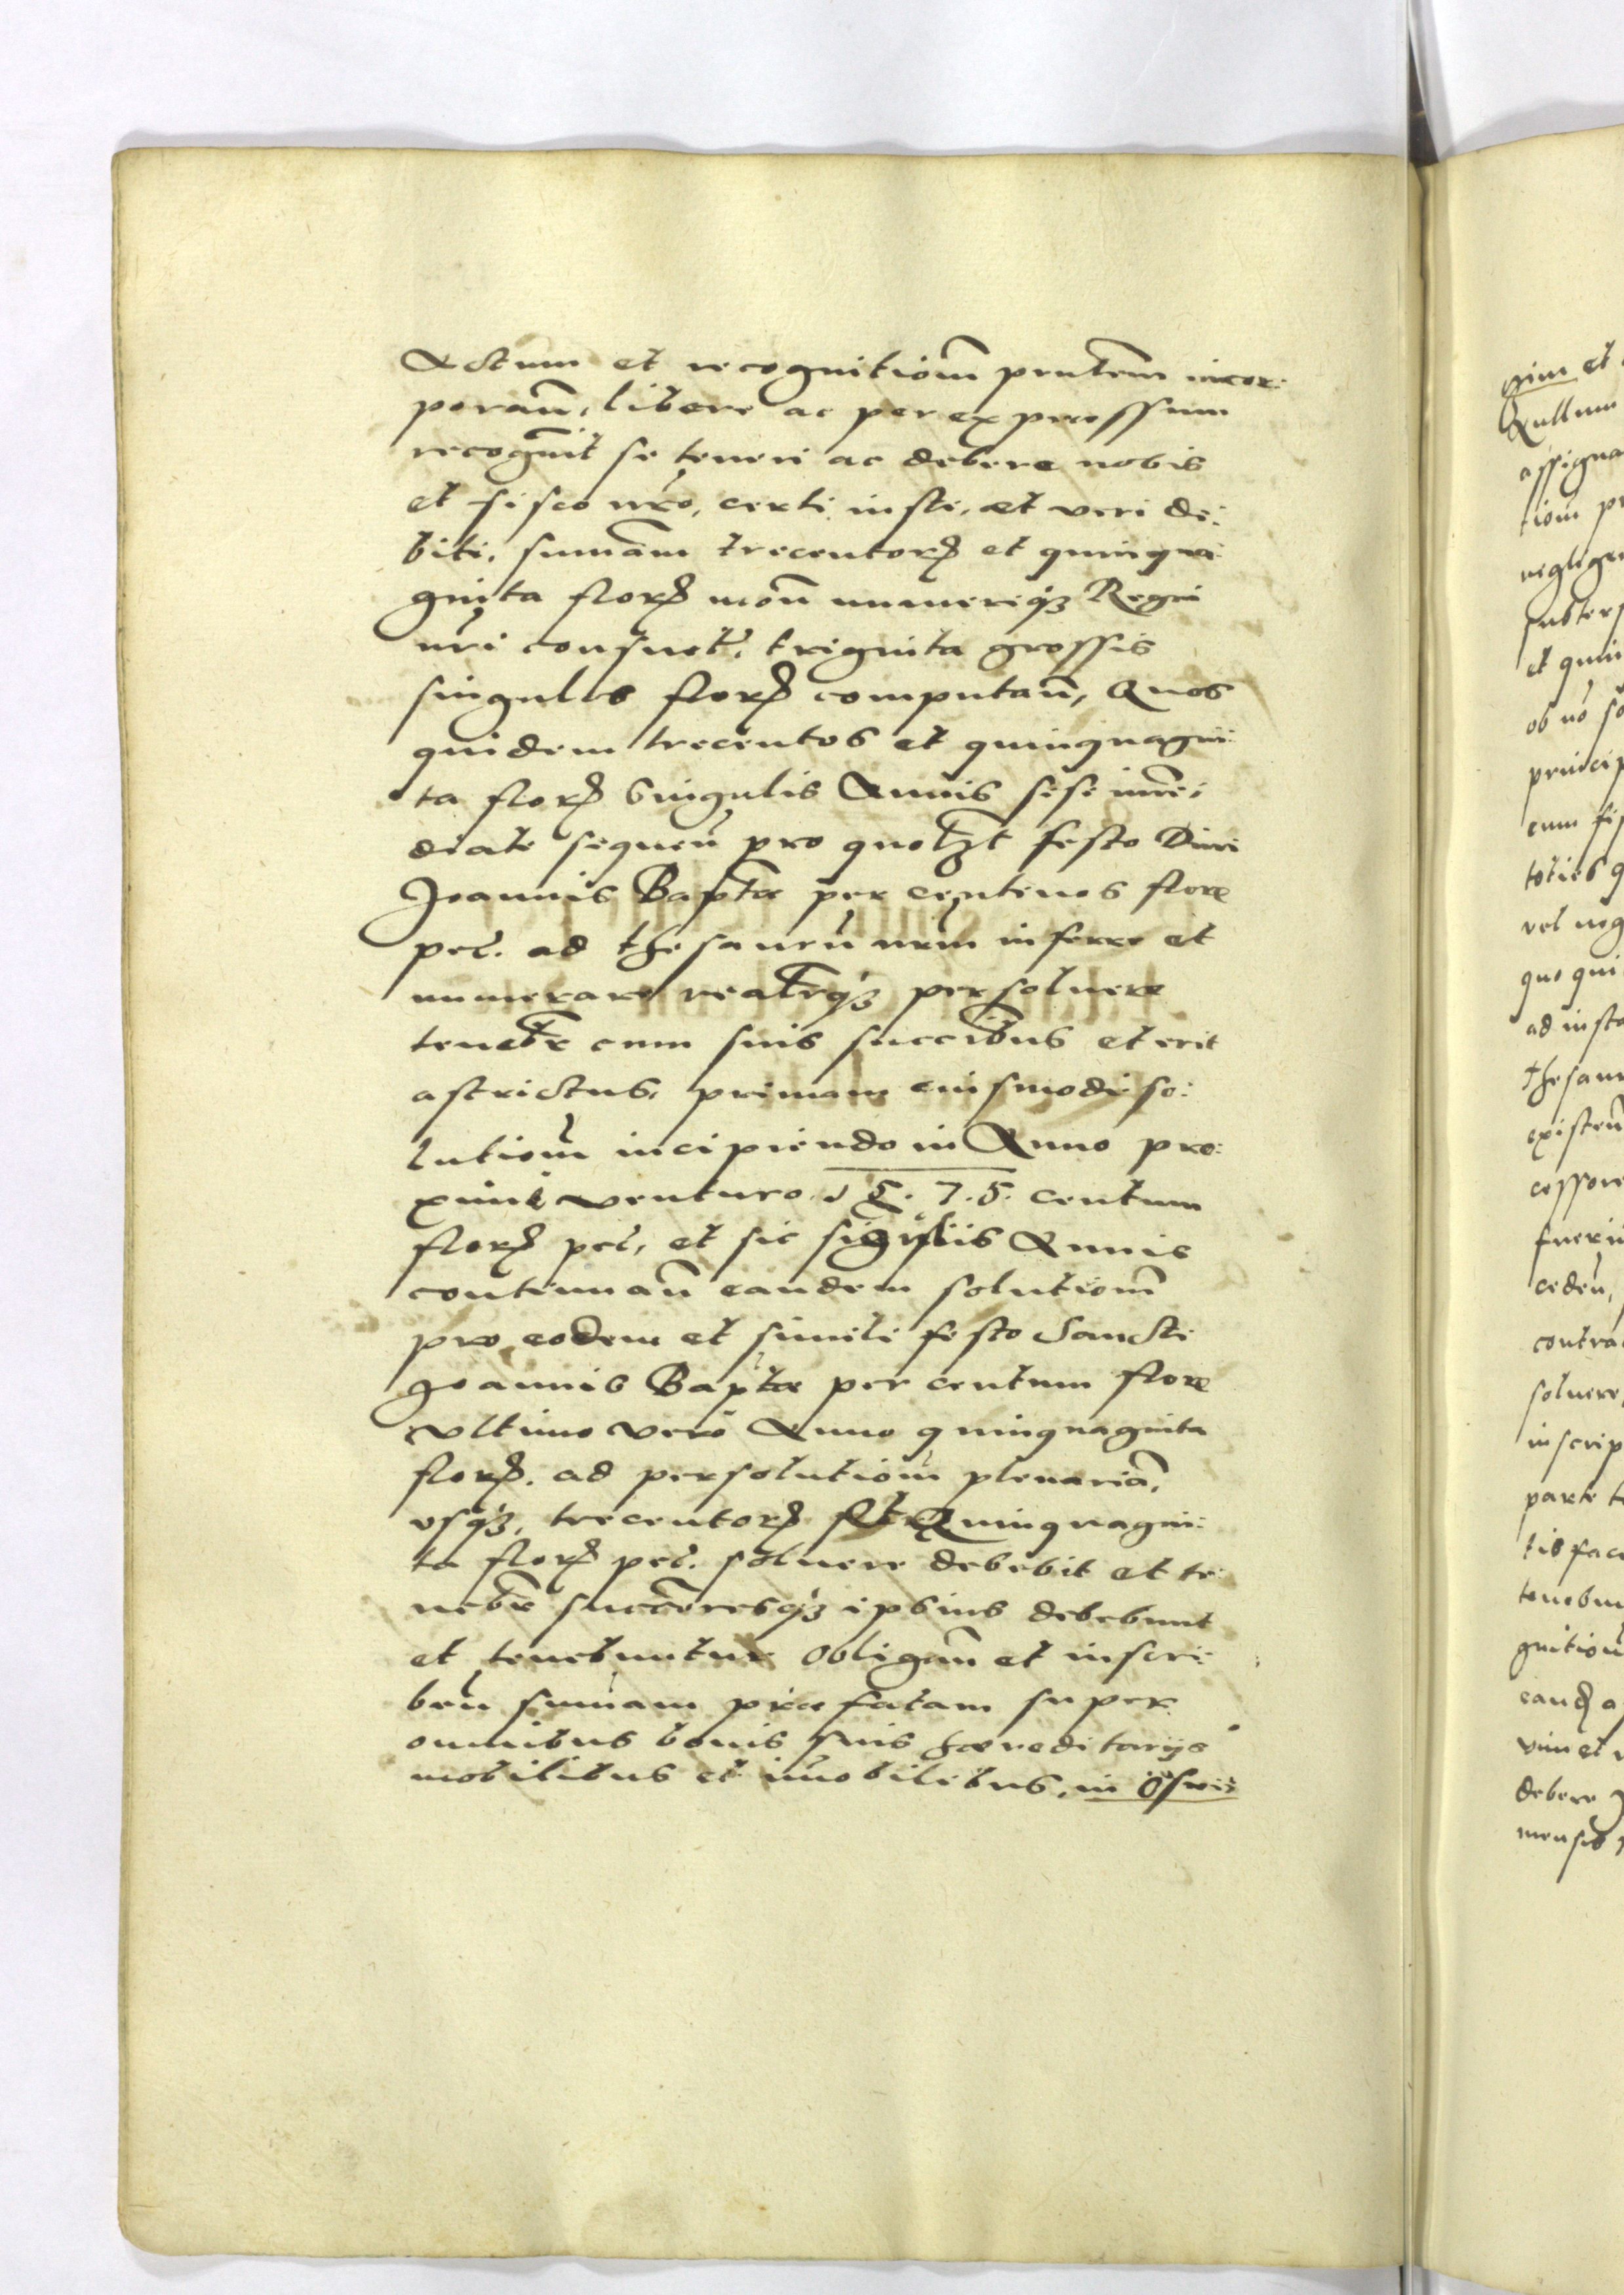 Actum et recognitiom̄ pn̄tem incor:
poran̄, libere ac per expressum
recogn̄it se teneri ac debere nobis
et fisco nr̄o, certi iusti, et veri de:
biti, sum̄am trecentorꝝ et quinqua
ginta florꝝ mon̄ numeriqꝫ Regni
nr̄i consuet̄, triginta grossis
singulos florꝝ computan̄, Quos
quidem trecentos et quinquagin:
ta florꝝ Singulis Annis sese im̄e:
diate sequen̄ pro quol̄t festo Diui
Joannis Bapt̄ae per centenos flore
pec̄. ad thesaurū nr̄m inferre et
numerare realr̄qꝫ persoluere
teneb̄r cum suis succ̄ribus et erit
astrictus, primam eiusmodi so:
lutiom̄ incipiendo in Anno pro:
ximè venturo 1 5. 7. 5. centum
florꝝ pec̄, et sic sigulis Annis
continuan̄ eandem solutiom̄
pro eodem et simili festo Sancti
Joannis Bapt̄ae per centum flore
vltimo vero Anno quinquaginta
florꝝ. ad persolutiom̄ plenariā,
vsqꝫ, trecentorꝝ et Quinquagin:
ta florꝝ pec̄. soluere debebit et te:
neb̄r succ̄oresqꝫ ipsius debebunt
et tenebuntur obligan̄ et inscri:
ben̄ sum̄am praefatam super
omnibus bonis suis haereditarijs
mobilibus et im̄obilibus, in Oswi:

gim et
Nullum
assigna
tiom̄ pr
neglige
subter
et quin
ob nō so
princip
cum fis
toties q
vel neg
quo qui
ad insta
thesau
existen̄
cessore
fueri
ceden̄,
contra
soluere
inscrip
parte t
tis fac
tenebu
gnitiom̄
eand̄ a
vim et
debere
mensis